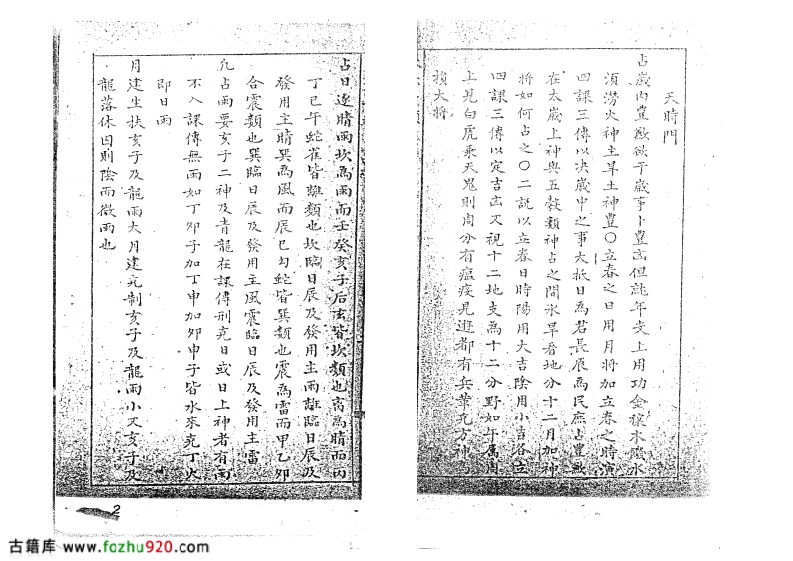 天時門
占歲內豊歉欲于歲事卜豊凶但就年支上用功金穣木歉水
須澇火神主旱土神豊〇立春之日用月將加立春之時演
四課三傳以决歲中之事大抵日為君長辰為民庶占豊歉
在太歲上神與五穀類神占之間水旱看地分十二月加神
將如何占之〇二說以立春日時陽用大吉陰用小吉各立
四課三傳以定吉凶又視十二地支為十二分野如午属周
上見白虎乗天鬼則周分有瘟疫見遊都有兵革克方神
損大將
占日逐晴雨坎為雨而壬癸亥子后玄皆坎類也离為晴而丙
丁巳午蛇雀皆離類也坎臨日辰及發用主雨離臨日辰及
發用主晴巽為風而辰巳勾蛇皆巽類也震為雷而甲乙卯
合震類也巽臨日辰及發用主風震臨日辰及發用主雷
凢占雨要亥子二神及青龍在課傳刑克日或日上神者有雨
不入課傳無雨如丁卯子加丁申加卯申子皆水來克丁火
即日雨
月建生扶亥子及龍雨大月建克制亥子及龍雨小又亥子及
龍落休囚則陰而微雨也
2
古籍库 www.fozhu920.com